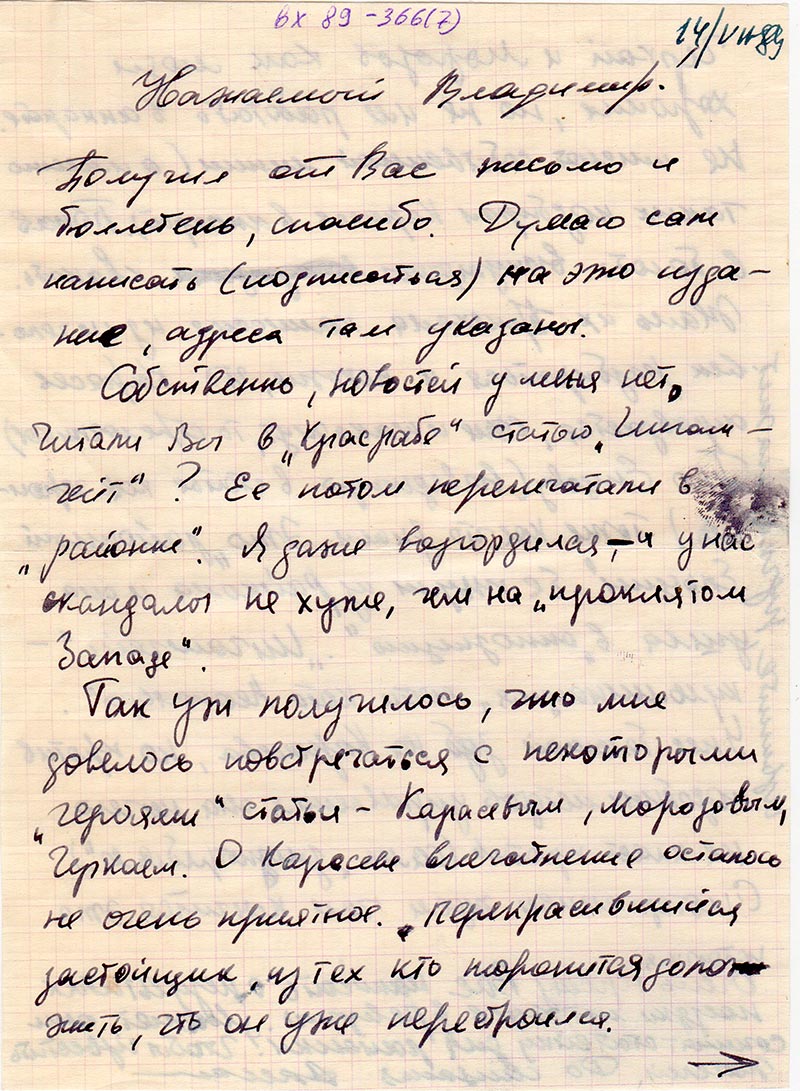 вх 89-366(7)
14/VII-89
Уважаемый Владимир.
Получил от Вас письмо и
бюллетень, спасибо. Думаю сам
написать (подписаться) на это изда-
ние, адреса там указаны.
Собственно, новостей у меня нет.
Читали Вы в „Красрабе“ статью „Шушам-
гейт“? Ее потом перепечатали в
„районке“. Я даже возгордился, – и у нас
скандалы не хуже, чем на „проклятом
Западе“.
Так уж получилось, что мне
довелось повстречаться с некоторыми
„героями“ статьи – Карасевым, Морозовым,
Геркаем. О Карасеве впечатление осталось
не очень приятное. Перекрасившийся
застойщик, из тех кто торопится доло-
жить, что он уже перестроился.